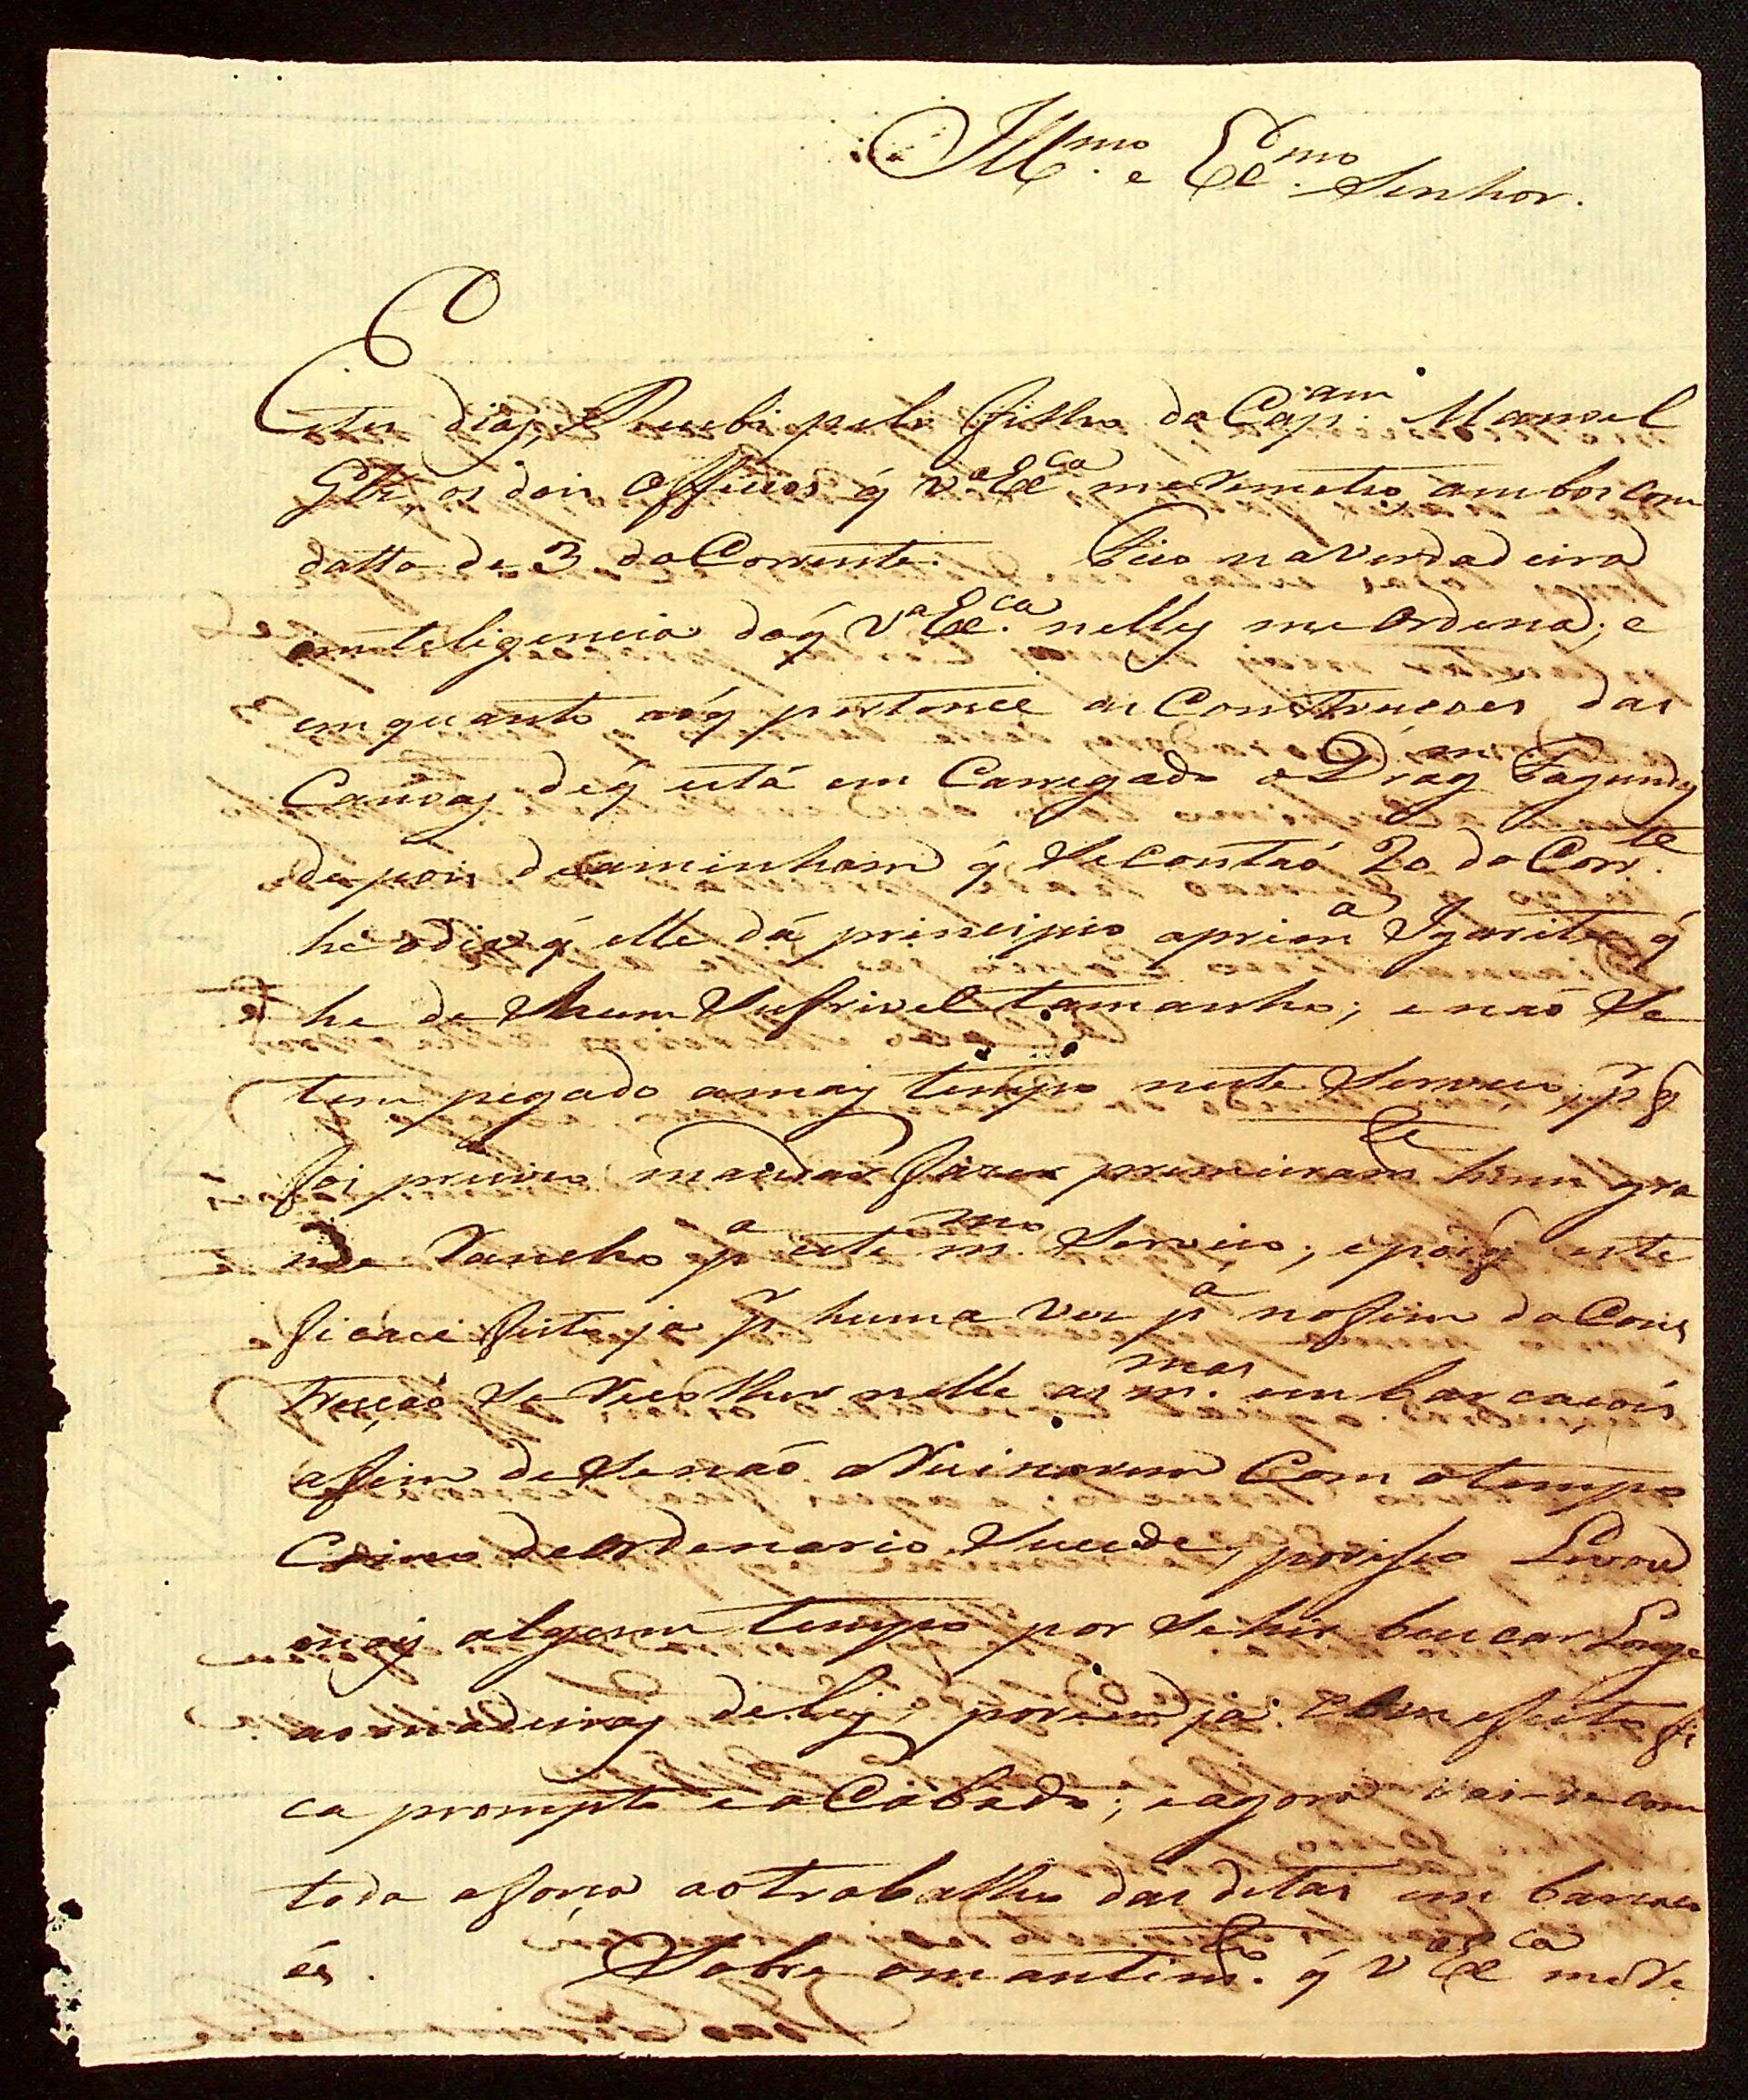 Illmo. e Exmo. Senhor.
Estes dias Recebi pelo filho do Capam. Manoel
os dois Officios q̃ Va. Exca. me Remeteo, ambos com
datta de 3 do Corrente. Fico na verdadeira
inteligencia doq̃ Va Exca. nelles me Ordena; e
emquanto aoq̃ pertence as Construcoẽs das
Canôas deq̃ está em Carregado o Dragm. Fagundes
depois de aminham q̃ Se contaõ 20 do Corrte.
he odia q̃ elle dá principio aprima Ygarite q̃
he de hum Sufrivel tamanho; e naõ Se
tem pegado amais tempo neste Servico, p̃ q̃
foi precizo mandar fazer primeiramte hum gra
nde Rancho pa este mmo. Servico; epoiq̃ este
ficace feito ja p̃ huma vez pa nofim da Cons
trucaõ Se Recolher nelle as mmas. embarcacois
afim de Senaõ aRuinarem Com otempo
Como deordenario Sucede, porisso Levou
mais algum tempo por Sehir buscar Longe
asmadeiras deley; porem já Com efeito fi
ca prompto eaCabado; eagora vai-se com
toda aforca aotrabalho dasditas em barcaco
ẽs. Sobre omantimto. q̃ Va Exca meRe